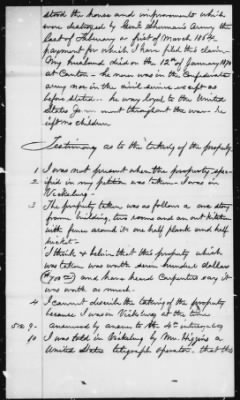 stood the house and improvements which
were destroyed by Genl Sherman's Army the
last of February or first of March 1864
payment for which I have filed this claim.
My husband died on the 12th of January 1870
at Canton – he never was in the Confederate
army nor in the civil service except as
before stated – he was loyal to the United
States Government throughout the war – he
left no children
Testimony as to the taking of the property
1 I was not present when the property spec-
2 ified in my petition was taken – I was in
Vicksburg –
3 The property taken was as follows a one story
frame building, two rooms and an out kitchen
with fence around it one half plank and half
picket –
I think & believe that this property which
was taken was worth seven hundred dollars
($700) and have heard Carpenters say it
was worth as much –
4 I cannot describe the taking of the property
because I was in Vicksburg at the time
5 to 9 – answered by answer to the 4th interrogatory
10 I was told in Vicksburg by Mr. Higgins a
United States telegraph operator, that this